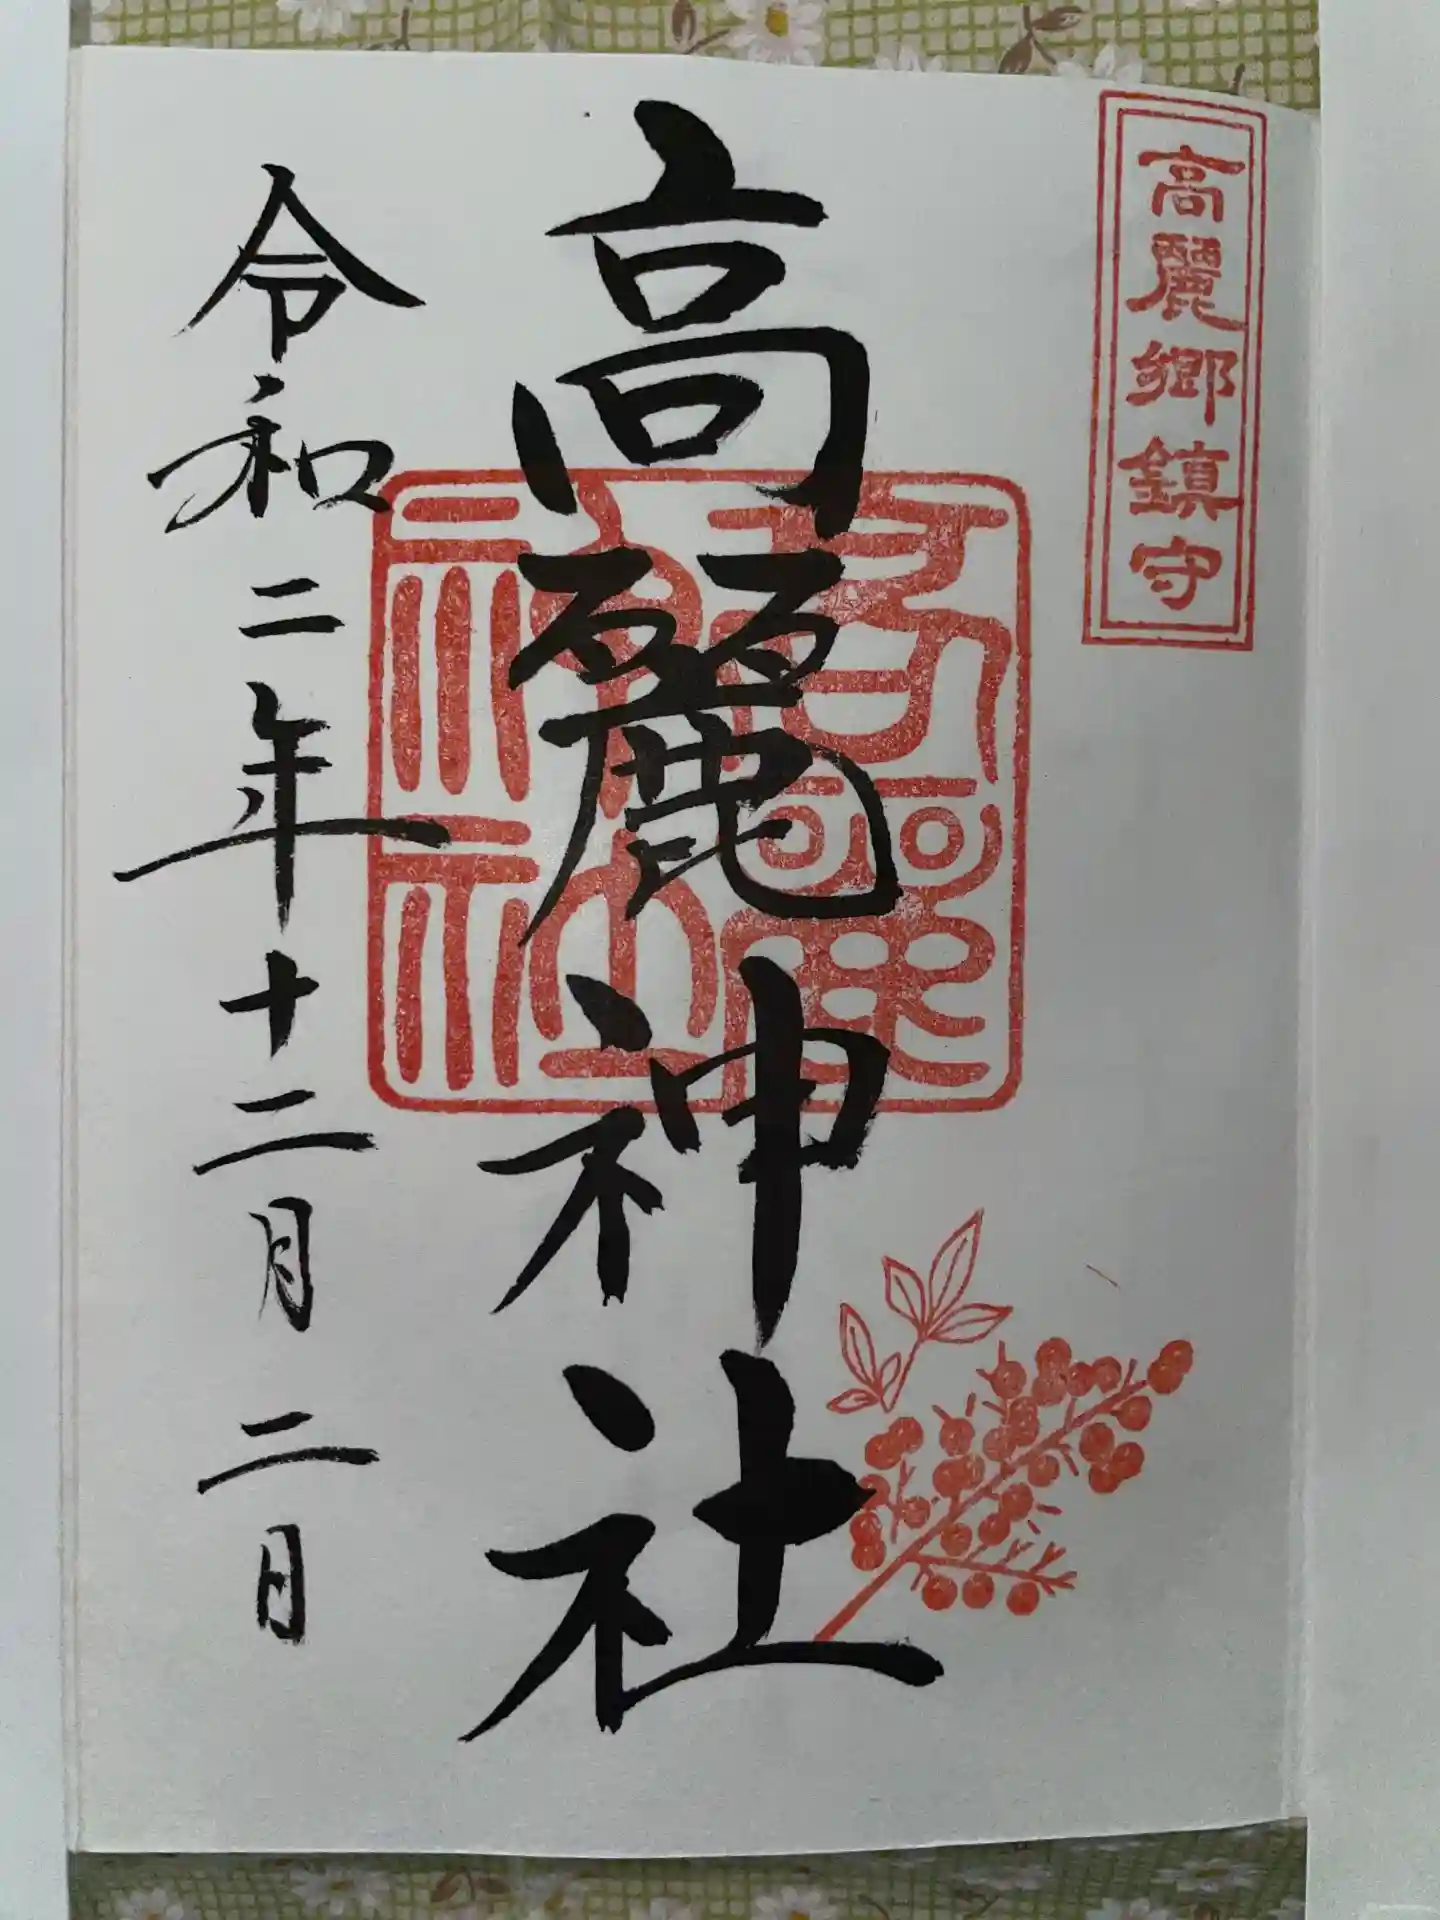 高麗郷鎮守
高麗神社
高麗神社
令和二年十二月二日